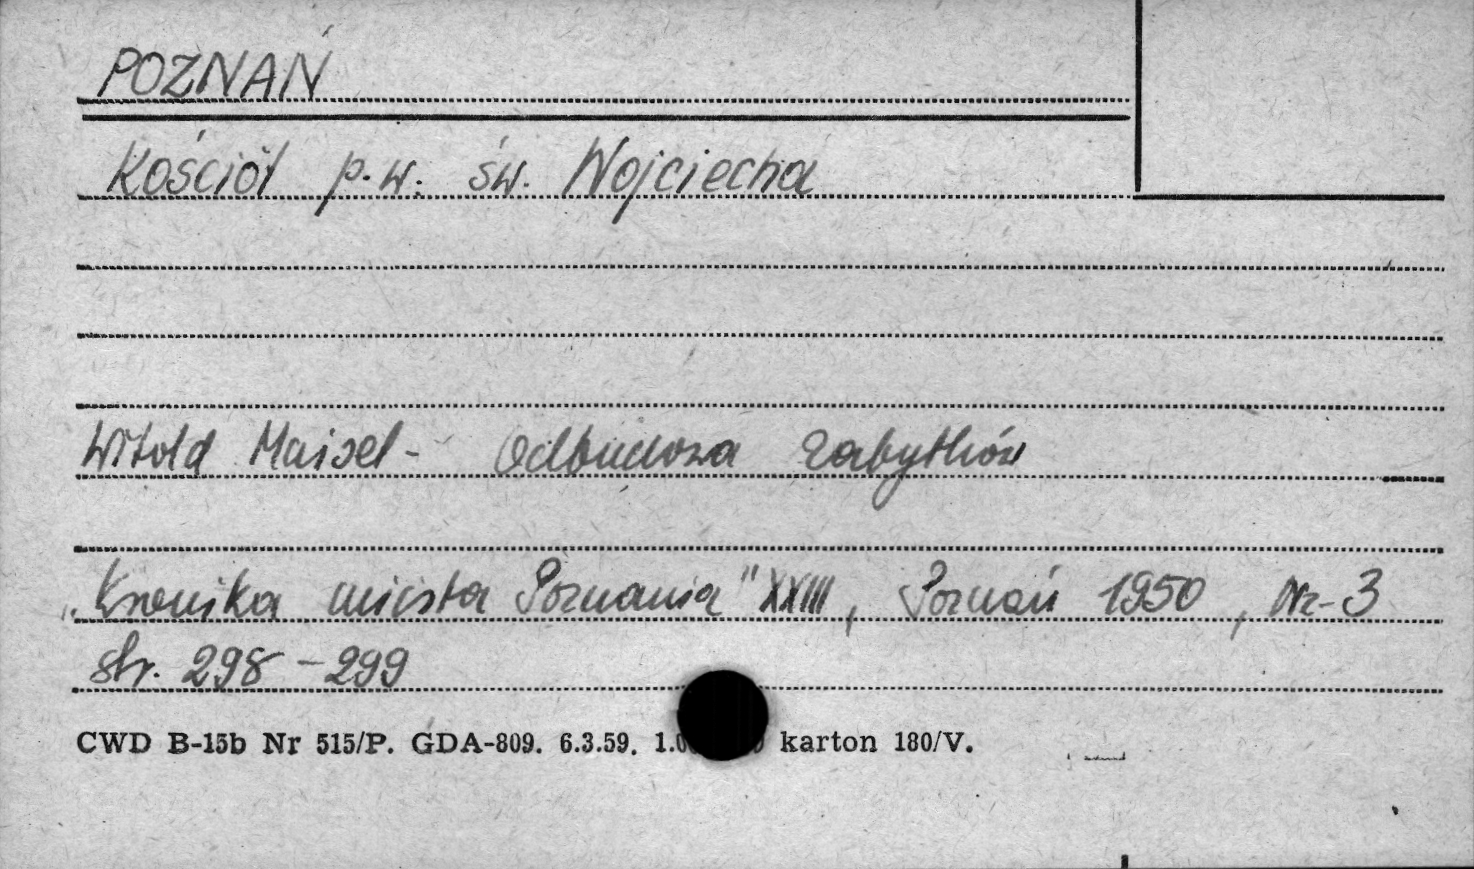 POZNAŃ
Kościół p.w. św. Wojciecha
Witold Maisel - Odbudowa zabytków
„Kronika miasta Poznania" XXIII, Poznań 1950, Nr-3
str. 298-299
CWD B-15b Nr 515/P. GDA-809. 6.3.59. karton 180/V.